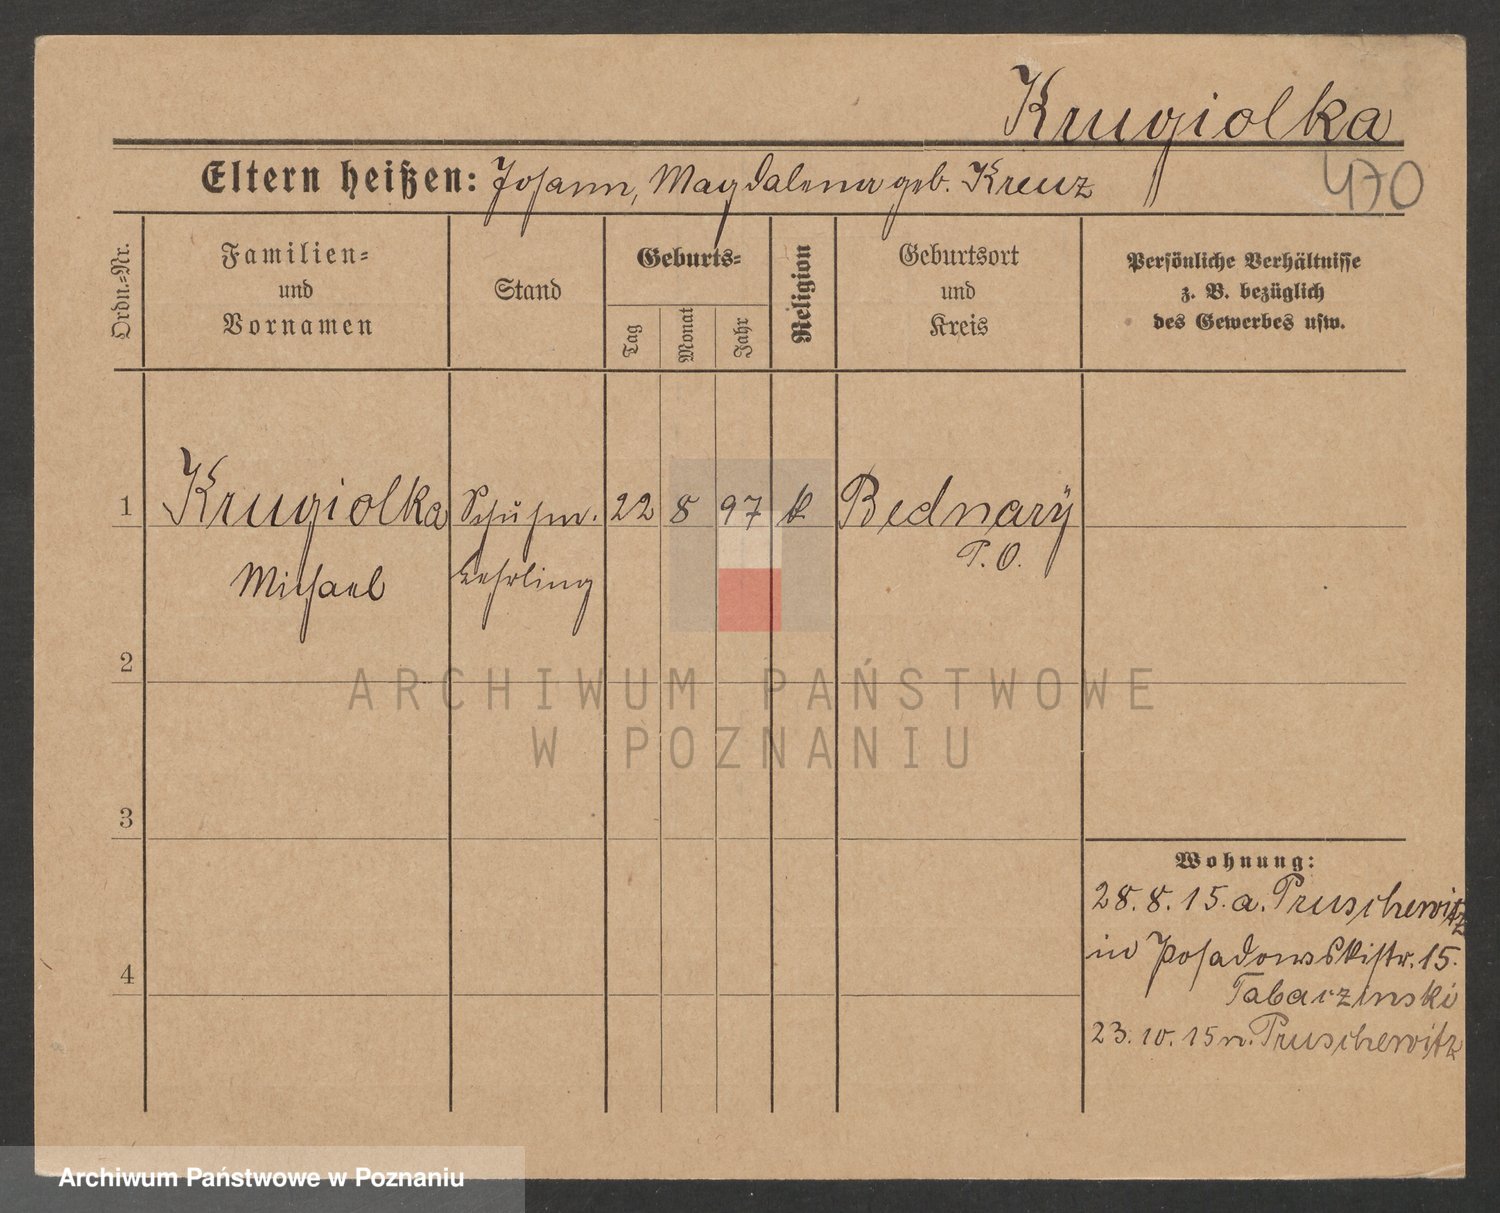 Krugiolka
470
Eltern heißen: Johann, Magdalena geb. Kreuz
Ordn.-Nr.
Familien-
und
Vornamen
Stand
Geburts-
Tag
Monat
Jahr
Religion
Geburtsort
und
Kreis
Persönliche Verhältnisse
z. B. bezüglich
des Gewerbes usw.
1 Krugiolka Schuhm. 22 8 97 k Bednarÿ
Michael Lehrling P. O.
2
3
4
Wohnung:
28. 8. 15. a. Pruschewitz
in Posadowskistr. 15.
Tabaczinski
23. 10. 15 n. Pruschewitz
ARCHIWUM PAŃSTWOWE
W POZNANIU
Archiwum Państwowe w Poznaniu